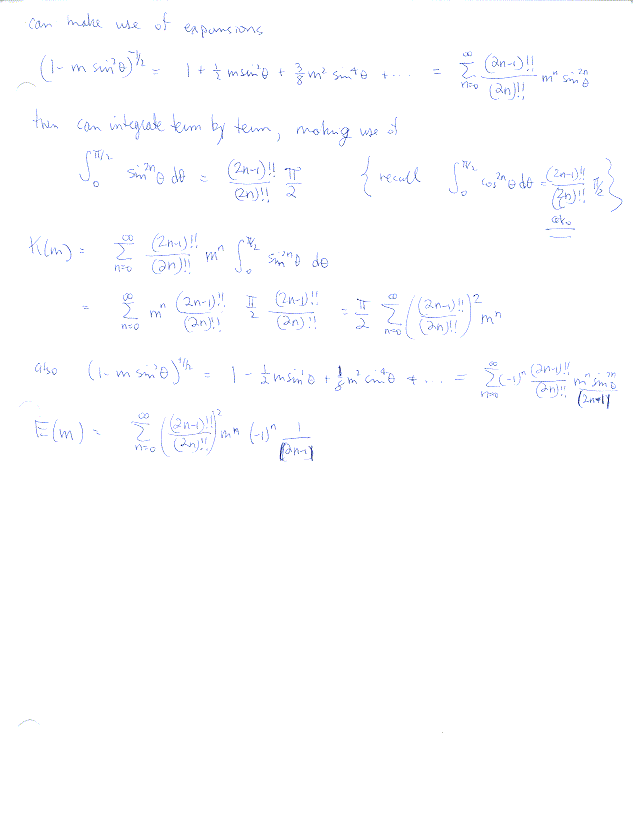 can make use of expansions
(1 - m sin²θ)^{-1/2} = 1 + 1/2 m sin²θ + 3/8 m² sin⁴θ + ... = ∑_{n=0}^{∞} (2n-1)!!/(2n)!! mⁿ sin^{2n}θ
then can integrate term by term, making use of
∫_0^{π/2} sin^{2n}θ dθ = (2n-1)!!/(2n)!! π/2 { recall ∫_0^{π/2} cos^{2n}θ dθ = (2n-1)!!/(2n)!! π/2 }
K(m) = ∑_{n=0}^{∞} (2n-1)!!/(2n)!! mⁿ ∫_0^{π/2} sin^{2n}θ dθ
= ∑_{n=0}^{∞} mⁿ (2n-1)!!/(2n)!! π/2 (2n-1)!!/(2n)!! = π/2 ∑_{n=0}^{∞} ((2n-1)!!/(2n)!!)² mⁿ
also (1 - m sin²θ)^{1/2} = 1 - 1/2 m sin²θ + 1/8 m² sin⁴θ + ... = ∑_{n=0} (-1)ⁿ (2n-1)!!/(2n)!! mⁿ sin^{2n}θ/(2n+1)
E(m) = ∑_{n=0}^{∞} ((2n-1)!!/(2n)!!)² mⁿ (-1)ⁿ 1/(2n-1)